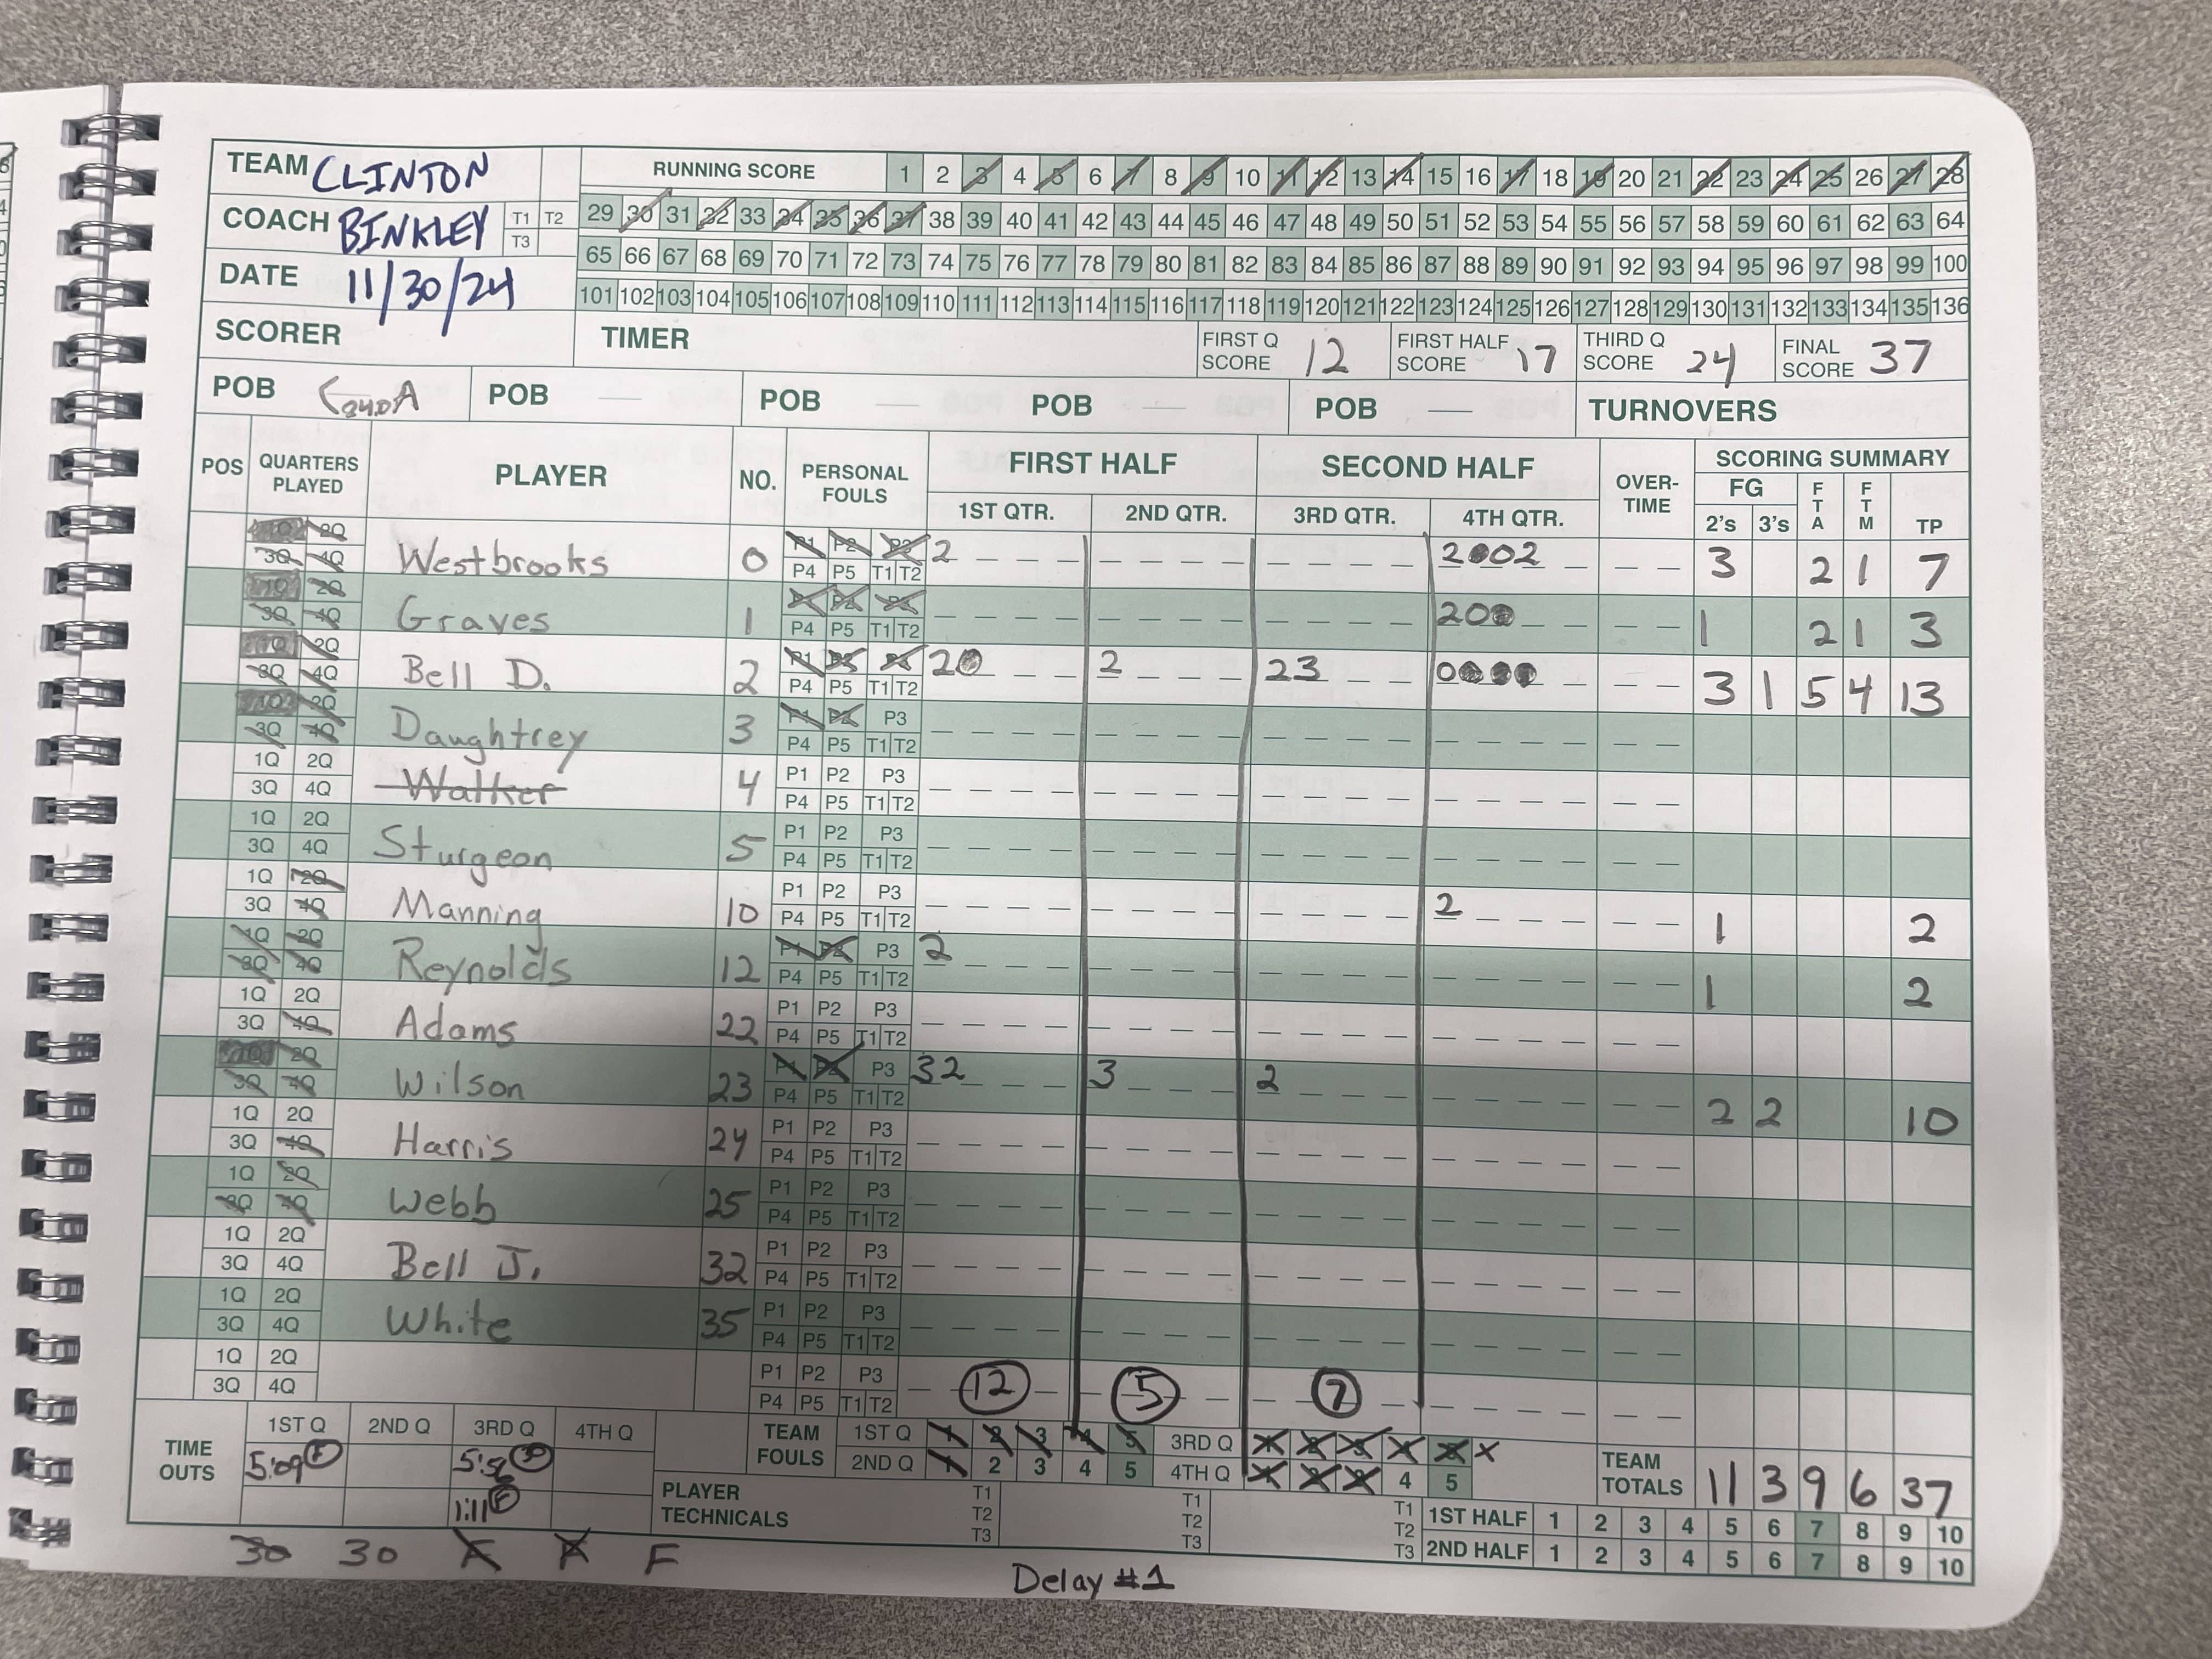 TEAM CLINTON
COACH BINKLEY T1 T2 T3
DATE 11/30/24
RUNNING SCORE 1 2 3 4 5 6 7 8 9 10 11 12 13 14 15 16 17 18 19 20 21 22 23 24 25 26 27 28
29 30 31 32 33 34 35 36 37 38 39 40 41 42 43 44 45 46 47 48 49 50 51 52 53 54 55 56 57 58 59 60 61 62 63 64
65 66 67 68 69 70 71 72 73 74 75 76 77 78 79 80 81 82 83 84 85 86 87 88 89 90 91 92 93 94 95 96 97 98 99 100
101 102 103 104 105 106 107 108 109 110 111 112 113 114 115 116 117 118 119 120 121 122 123 124 125 126 127 128 129 130 131 132 133 134 135 136
SCORER TIMER FIRST Q SCORE 12 FIRST HALF SCORE 17 THIRD Q SCORE 24 FINAL SCORE 37
POB POB — POB — POB — POB — TURNOVERS
POS QUARTERS PLAYED PLAYER NO. PERSONAL FOULS FIRST HALF SECOND HALF OVER-TIME SCORING SUMMARY
1ST QTR. 2ND QTR. 3RD QTR. 4TH QTR. FG 2's 3's FTA FTM TP
2Q P1 P2 P3 2 2002
3Q 4Q Westbrooks 0 P4 P5 T1 T2 3 2 1 7
2Q 200
3Q 4Q Graves 1 P4 P5 T1 T2 1 2 1 3
2Q P1 20 2 23 0000
3Q 4Q Bell D. 2 P4 P5 T1 T2 3 1 5 4 13
2Q P1 P2 P3
3Q 4Q Daughtrey 3 P4 P5 T1 T2
1Q 2Q P1 P2 P3
3Q 4Q Walker 4 P4 P5 T1 T2
1Q 2Q P1 P2 P3
3Q 4Q Sturgeon 5 P4 P5 T1 T2
1Q 2Q P1 P2 P3 2
3Q 4Q Manning 10 P4 P5 T1 T2 1 2
1Q 2Q P1 P2 P3 2
3Q 4Q Reynolds 12 P4 P5 T1 T2 1 2
1Q 2Q P1 P2 P3
3Q 4Q Adams 22 P4 P5 T1 T2
2Q P1 P2 P3 32 3 2
3Q 4Q Wilson 23 P4 P5 T1 T2 2 2 10
1Q 2Q P1 P2 P3
3Q 4Q Harris 24 P4 P5 T1 T2
1Q 2Q P1 P2 P3
3Q 4Q Webb 25 P4 P5 T1 T2
1Q 2Q P1 P2 P3
3Q 4Q Bell J. 32 P4 P5 T1 T2
1Q 2Q P1 P2 P3
3Q 4Q White 35 P4 P5 T1 T2
1Q 2Q P1 P2 P3
3Q 4Q P4 P5 T1 T2 12 5 7
TIME OUTS 1ST Q 2ND Q 3RD Q 4TH Q
5:09 F 5:56 30
1:11 F
TEAM FOULS 1ST Q 1 2 3 4 5 3RD Q 1 2 3 4 5 X
2ND Q 1 2 3 4 5 4TH Q 1 2 3 4 5
TEAM TOTALS 11 3 9 6 37
PLAYER TECHNICALS T1 T2 T3 T1 T2 T3 T1 T2 T3
1ST HALF 1 2 3 4 5 6 7 8 9 10
2ND HALF 1 2 3 4 5 6 7 8 9 10
30 30 F F F
Delay #1